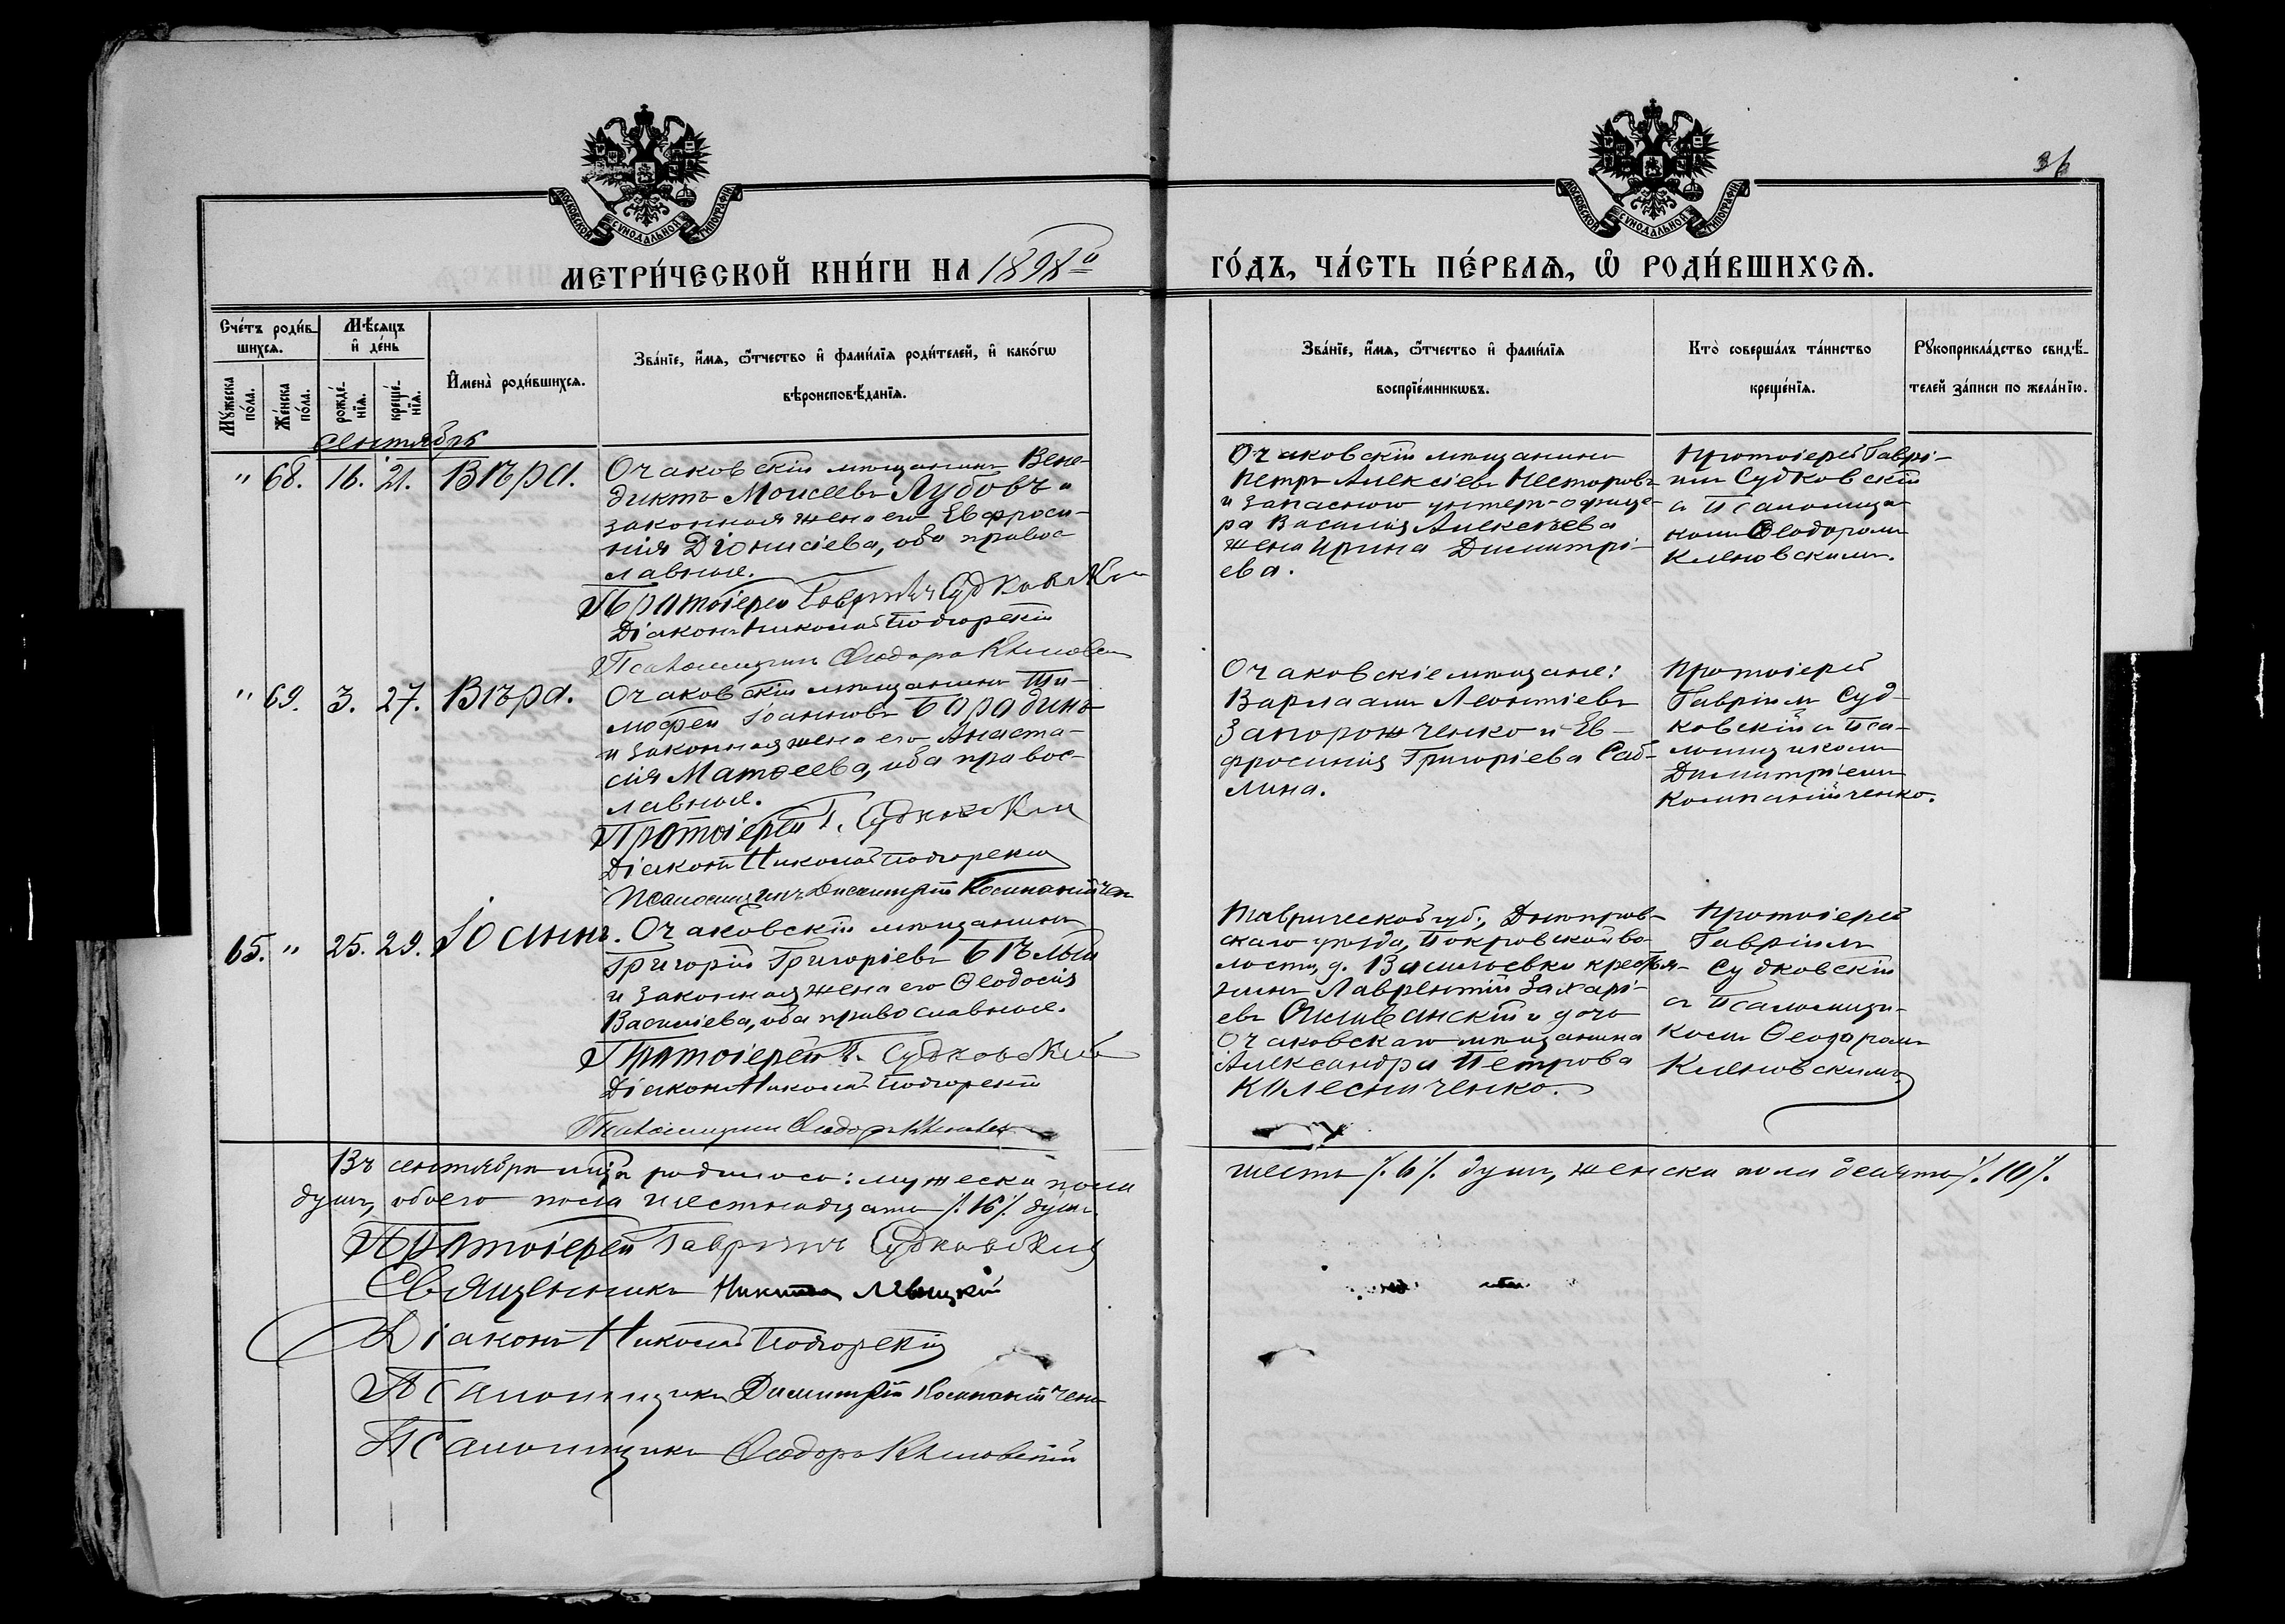 МОСКОВСКОЙ СѴНОДАЛЬНОЙ ТИПОГРАФІИ
МОСКОВСКОЙ СѴНОДАЛЬНОЙ ТИПОГРАФІИ
36
МЕТРИ́ЧЕСКОЙ КНИ́ГИ НА 1898й
ГО́ДЪ, ЧА́СТЬ ПЕ́РВАѦ, Ѡ҆ РОДИ́ВШИХСѦ.
Сче́тъ роди́в-
шихсѧ.
Мꙋ́жеска по́ла.
Же́нска по́ла.
Мѣ́сѧцъ
и҆ де́нь
рожде́-
нїѧ.
креще́-
нїѧ.
И҆мена̀ роди́вшихсѧ.
Зва́нїе, и҆́мѧ, ѻ҆́тчество и҆ фами́лїѧ роди́телей, и҆ како́гѡ
вѣроисповѣ́данїѧ.
Зва́нїе, и҆́мѧ, ѻ҆́тчество и҆ фами́лїѧ
воспрїе́мникѡвъ.
Кто̀ соверша́лъ та́инство
креще́нїѧ.
Рꙋкоприкла́дство свидѣ́-
телей за́писи по жела́нїю.
Сентябрь
" 68. 16. 21. Вѣра.
Очаковскій мѣщанинъ Вене-
диктъ Моисеевъ Лубовъ и
законная жена его Евфроси-
нія Діонисіева, оба правос
лавные.
Протоіерей Гавріилъ Судковскій
Діаконъ Николай Подгорскій
Псаломщикъ Ѳеодоръ Кленовскій
Очаковскій мѣщанинъ
Петръ Алексіевъ Несторовъ
и запаснаго унтеръ-офице-
ра Василія Алексѣева
жена Ирина Димитрі-
ева.
Протоіерей Гаврі-
илъ Судковскій
съ Псаломщи-
комъ Ѳеодоромъ
Кленовскимъ.
" 69. 3. 27. Вѣра.
Очаковскій мѣщанинъ Ти-
мофей Іоанновъ Бородинъ
и законная жена его Анаста-
сія Матѳеева, оба правос-
лавные.
Протоіерей Г. Судковскій
Діаконъ Николай Подгорскій
Псаломщикъ Димитрій Компанійчен
Очаковскіе мѣщане:
Варлаамъ Леонтіевъ
Запорожченко и Ев-
фросинія Григоріева Саб-
лина.
Протоіерей
Гавріилъ Суд-
ковскій съ Пса-
ломщикомъ
Димитріемъ
Компанійченко.
65. " 25. 29. Іоаннъ.
Очаковскій мѣщанинъ
Григорій Григоріевъ Бѣлый
и законная жена его Ѳеодосія
Василіева, оба православные.
Протоіерей Г. Судковскій
Діаконъ Николай Подгорскій
Псаломщикъ Ѳеодоръ Кленовскій
Таврической губ., Днѣпров-
скаго уѣзда, Покровской во-
лости, д. Васильевки крестья-
нинъ Лаврентій Захарі-
евъ и дочь
Очаковскаго мѣщанина
Александра Петрова
Колесниченко.
Протоіерей
Гавріилъ
Судковскій
съ Псаломщи-
комъ Ѳеодоромъ
Кленовскимъ
Въ сентябрѣ м-цѣ родилось: мужеска пола
шесть /.6/. душъ, женска пола десять /.10/.
душъ, обоего пола шестнадцать /.16/. душъ.
Протоіерей Гавріилъ Судковскій
Священникъ Никита Левицкій
Діаконъ Николай Подгорскій
Псаломщикъ Димитрій Компанійчен
Псаломщикъ Ѳеодоръ Кленовскій